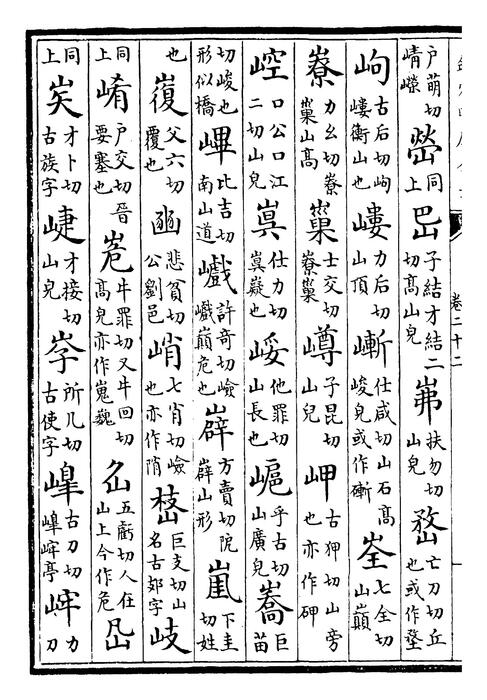 戶萌切崝嶸嵤同上岊子結才結二切高山皃岪扶勿切山皃嵍亡刀切丘也或作堥
岣古后切岣嶁衡山也嶁力后切山頂嶃仕咸切山石高峻皃或作磛峑七全切山巔
嶚力幺切嶚巢山高士交切嶚巢嶟子昆切山皃岬古狎切山旁也亦作碑
崆口公口江二切山皃仕力切嶷也他罪切山長也乎古切山廣皃巨苗
切峻也形似橋比吉切南山道巇許奇切嶮巇巔危也方賣切院山形下圭切姓
也父六切覆也豳悲貧切公劉邑峭七肖切嶮也亦作陗巨支切山名古郊字岐
同上崤戶交切晉要塞也峞牛罪切又牛回切高皃亦作嵬巍五虧切人在山上今作危
同上才卜切古族字崨才接切山皃所几切古使字古刀切亭力刀
卷二十二